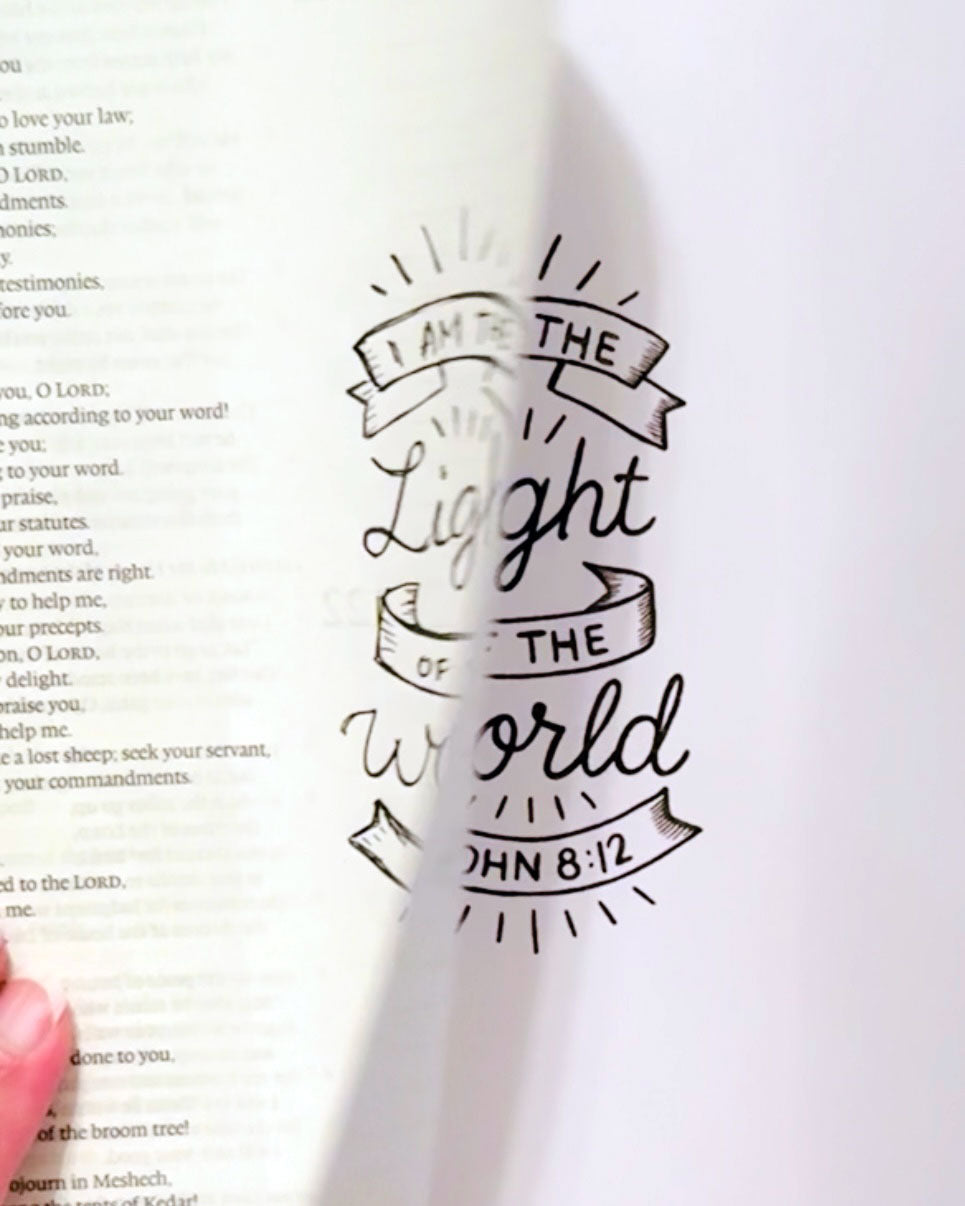 ou
o love your law;
stumble.
O LORD,
dments.
nonies;
y.
testimonies,
fore you.
you, O LORD;
ng according to your word!
e you;
to your word.
praise,
ur statutes.
your word,
ndments are right.
y to help me,
our precepts.
on, O LORD,
delight.
praise you,
help me.
e a lost sheep; seek your servant,
your commandments.
ed to the LORD,
me.
done to you,
of the broom tree!
ojourn in Meshech,
the tents of Kedar!
I AM THE THE
Light
OF THE
World
OHN 8:12